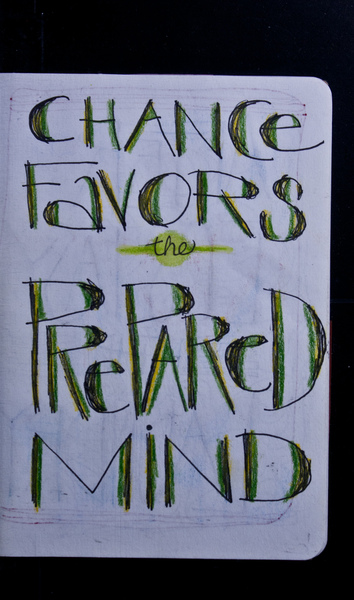 CHANCe
FaVORS
the
PRePAReD
MiND